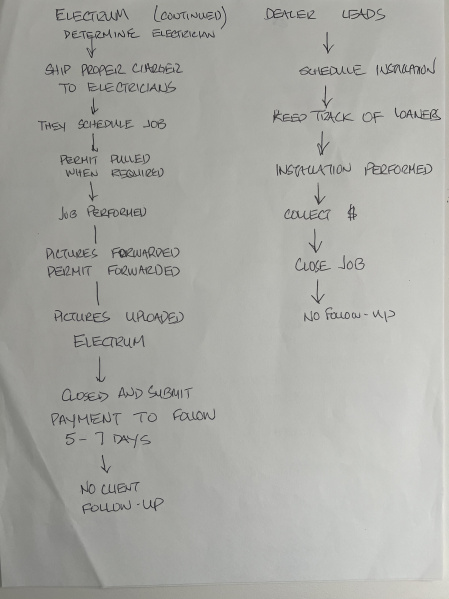 ELECTRUM (CONTINUED)
DETERMINE ELECTRICIAN
SHIP PROPER CHARGER
TO ELECTRICIANS
THEY SCHEDULE JOB
PERMIT PULLED
WHEN REQUIRED
JOB PERFORMED
PICTURES FORWARDED
PERMIT FORWARDED
PICTURES UPLOADED
ELECTRUM
CLOSED AND SUBMIT
PAYMENT TO FOLLOW
5-7 DAYS
NO CLIENT
FOLLOW-UP
DEALER LEADS
SCHEDULE INSTALLATION
KEEP TRACK OF LOANERS
INSTALLATION PERFORMED
COLLECT $
CLOSE JOB
NO FOLLOW-UP